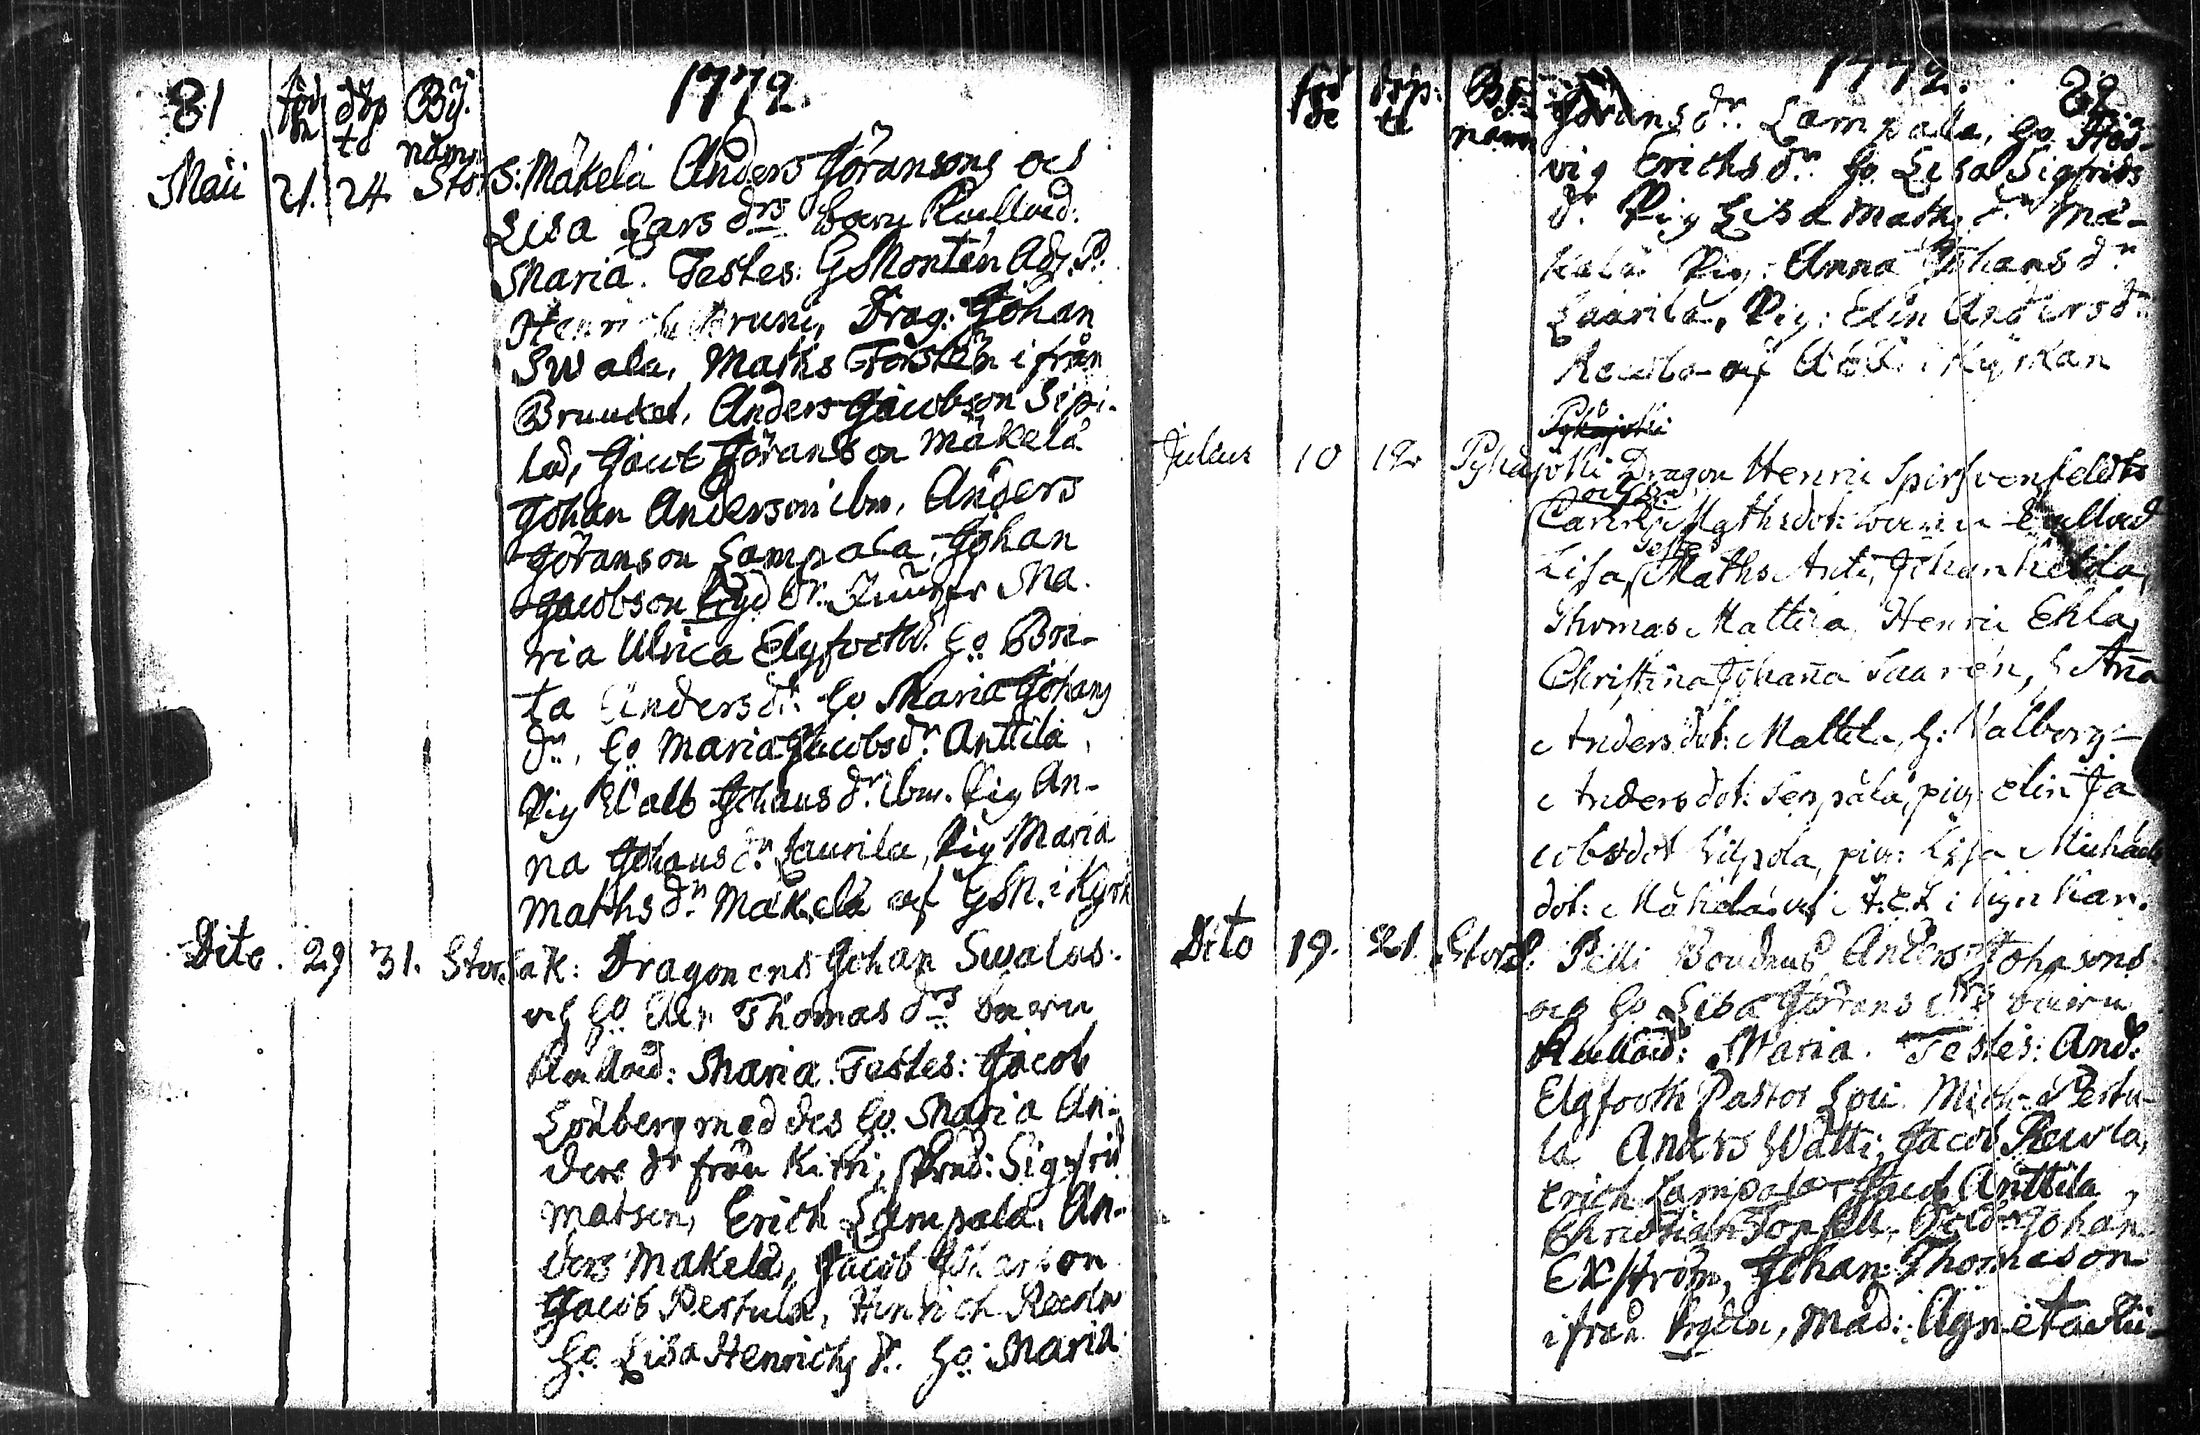 81 föd de döp te By. nämn 1772.
Maii 21. 24. Stor S: Mäkelä Anders Göransons och
Lisa Lars drs barn Kallad:
Maria. Testes: G Montén Adj. P:
Henrich Bruni, Drag: Johan
Swala, Maths Forstén ifrån
Bruuket, Anders Jacobson Sipi-
lä, Jacob Göranson Mäkelä
Johan Anderson ibm, Anders
Göranson Lampala, Johan
Jacobson Jungfr Ma-
ria Ulrica Elgfooth. Ho Bri-
ta Anders dr Ho Maria Johans
dr, Ho Maria Jacobs dr Anttila,
Pig Walb Johans dr ibm. Pig An-
na Johans dr Laurila, Pig Maria
Maths dr Mäkelä af GM. i Kyrk
Dito. 29 31. Stor Säk: Dragonens Johan Swalas
och Ho Elin Thomas drs barn
Kallad: Maria. Testes: Jacob
Lönberg med des Ho Maria An-
ders dr från Kirri, Sigfrid
Matson, Erich Lampala, An-
ders Mäkelä, Jacob Johanson
Jacob Pertula, Hinrich Recola
Ho Lisa Henrichs dr. Ho: Maria
föd de döp: te By: namn 1772. 82
Görans dr Lampala, Ho Hed-
vig Erichs dr Ho Lisa Sigfrids
dr Pig Lisa Maths dr Mä-
kelä Pig: Anna Johans dr
Laurila, Pig: Elin Anders dr
Recola af i Kyrkan
Pyhäjoki
Julius 10 12 Pyhäjoki Dragon Henric
och Carin Mathsdot: barn Kallad
Lisa, Teste Maths Anti, Johan Heikila,
Thomas Mattila, Henric Ekla,
Christina Johana Saarén, H Ana
Andersdot: Mattila, H: Walborg
Andersdot: Seppälä, pig: Elin Ja
cobsdot Wilpola, pig: Lisa Michaels
dot: Mäkelä af A: E: L i Kyrkan.
Dito 19. 21. Stor S. Pelli Bondens Anders Johnsons
och Ho Lisa Görans drs barn
Kallad: Maria. Testes: And:
Elgfooth Pastor Loci Mich: Pertu-
la Anders Watti, Jacob Recola,
Erich Lampala Jacob Anttila
Christian Topfell, Johan
Exström, Johan Thomason
ifrån Byden, Mad: Agneta